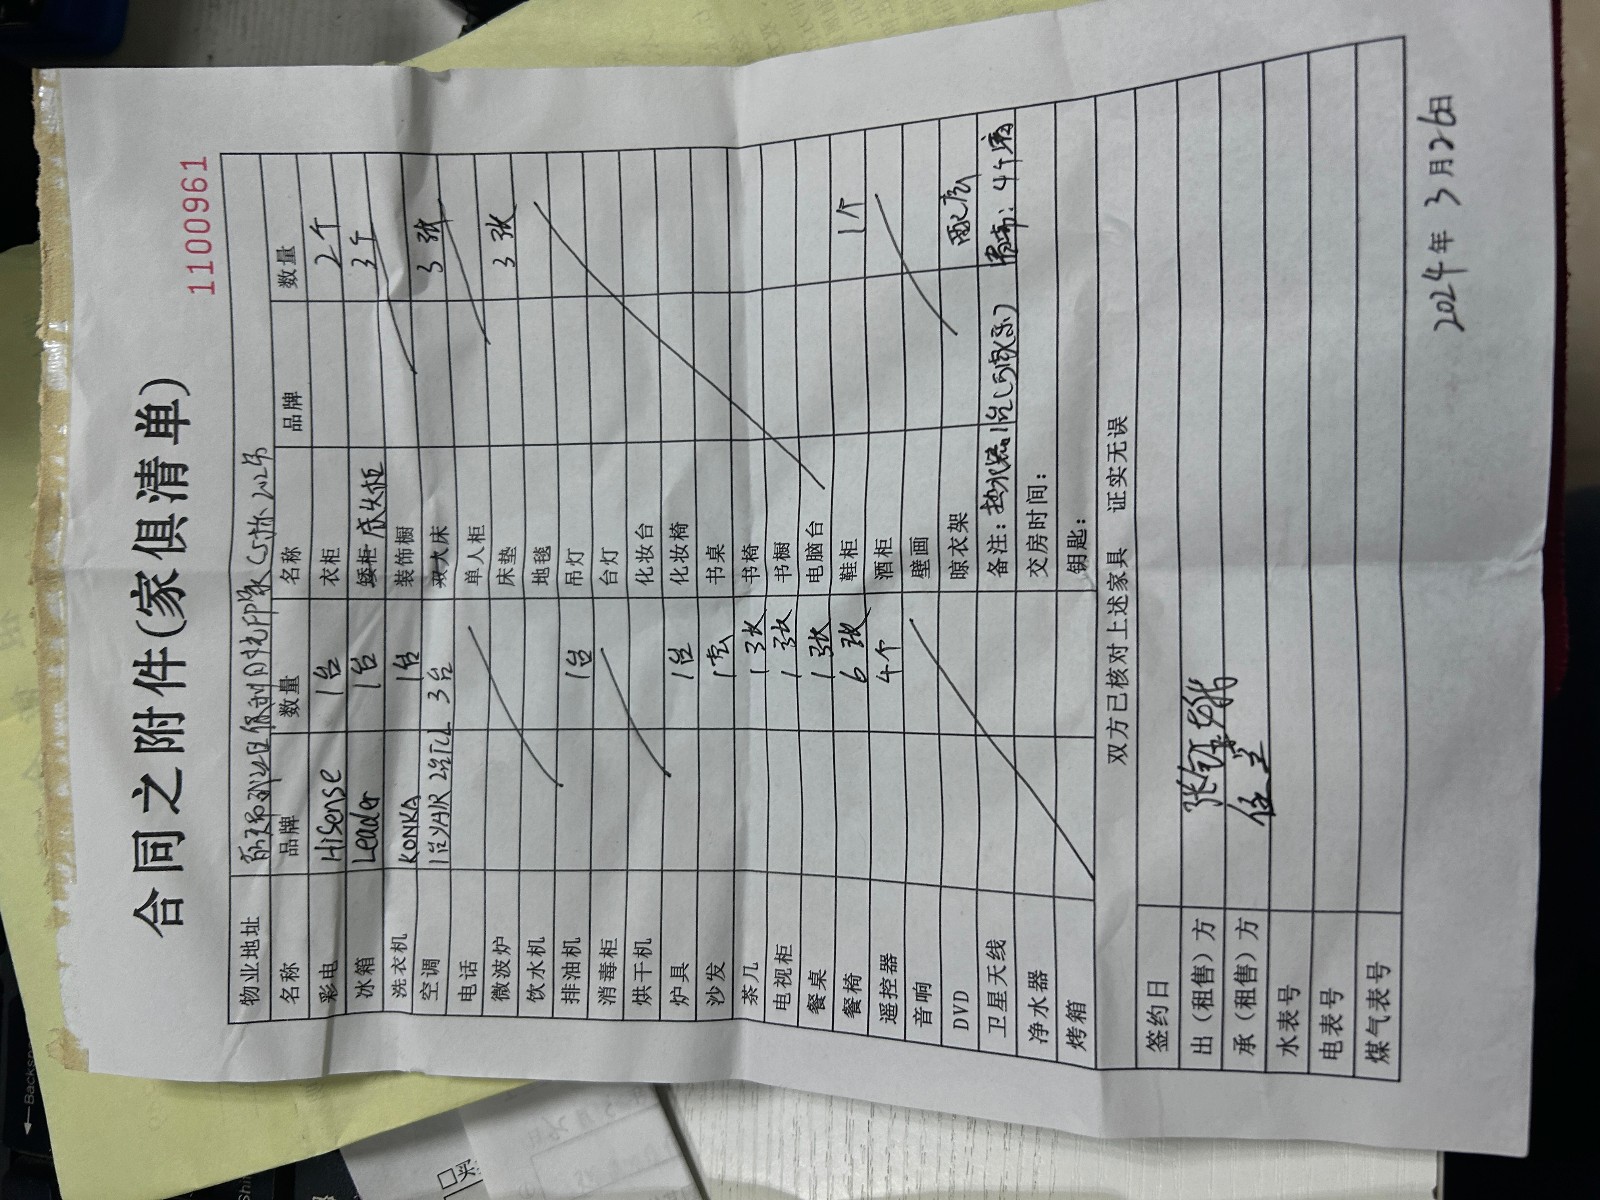 合同之附件(家俱清单)
1100961
物业地址
名称 品牌 数量 名称 品牌 数量
彩电 Hisense 1台 衣柜 2个
冰箱 Leader 1台 矮柜 床头柜 3个
洗衣机 KONKA 1台 装饰橱
空调 3台 双人床 3张
电话 单人柜
微波炉 床垫 3张
饮水机 地毯
排油机 1台 吊灯
消毒柜 台灯
烘干机 化妆台
炉具 1台 化妆椅
沙发 1套 书桌
茶几 1张 书椅
电视柜 1张 书橱
餐桌 1张 电脑台
餐椅 6张 鞋柜 1个
遥控器 4个 酒柜
音响 壁画
DVD 晾衣架 配底
卫星天线 备注:热水器1台(万家乐) 窗帘:4个房
净水器 交房时间:
烤箱 钥匙:
双方已核对上述家具 证实无误
签约日
出(租售)方
承(租售)方
水表号
电表号
煤气表号
2024年3月26日
Backsp
买